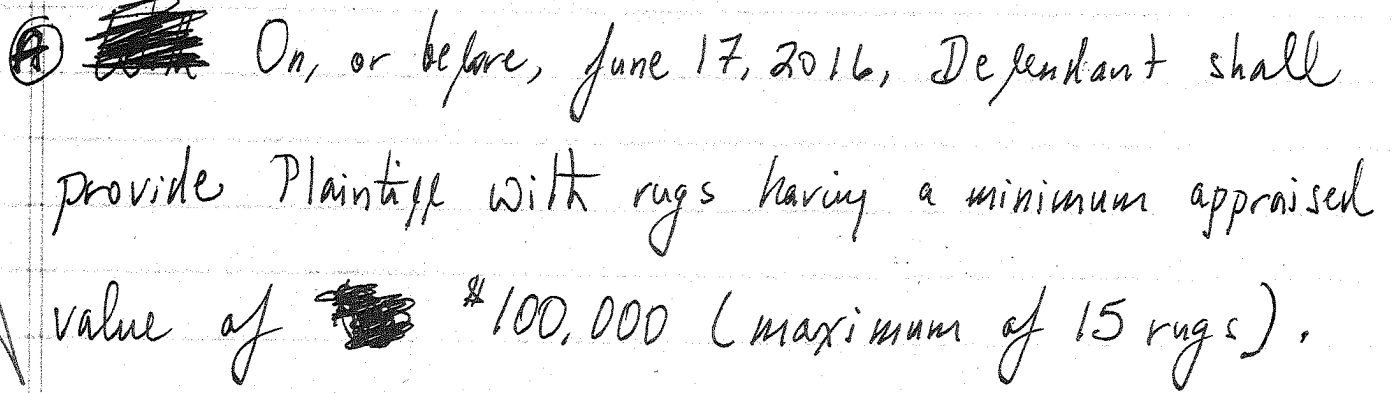 Ⓐ On, or before, June 17, 2016, Defendant shall
provide Plaintiff with rugs having a minimum appraised
value of $100,000 (maximum of 15 rugs).